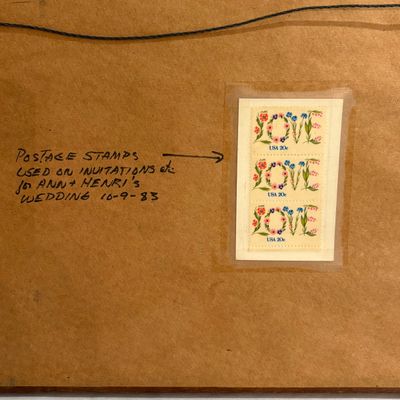 POSTAGE STAMPS
USED ON INVITATIONS etc
for ANN + HENRI'S
WEDDING 10-9-83
LOVE
USA 20c
LOVE
USA 20c
LOVE
USA 20c